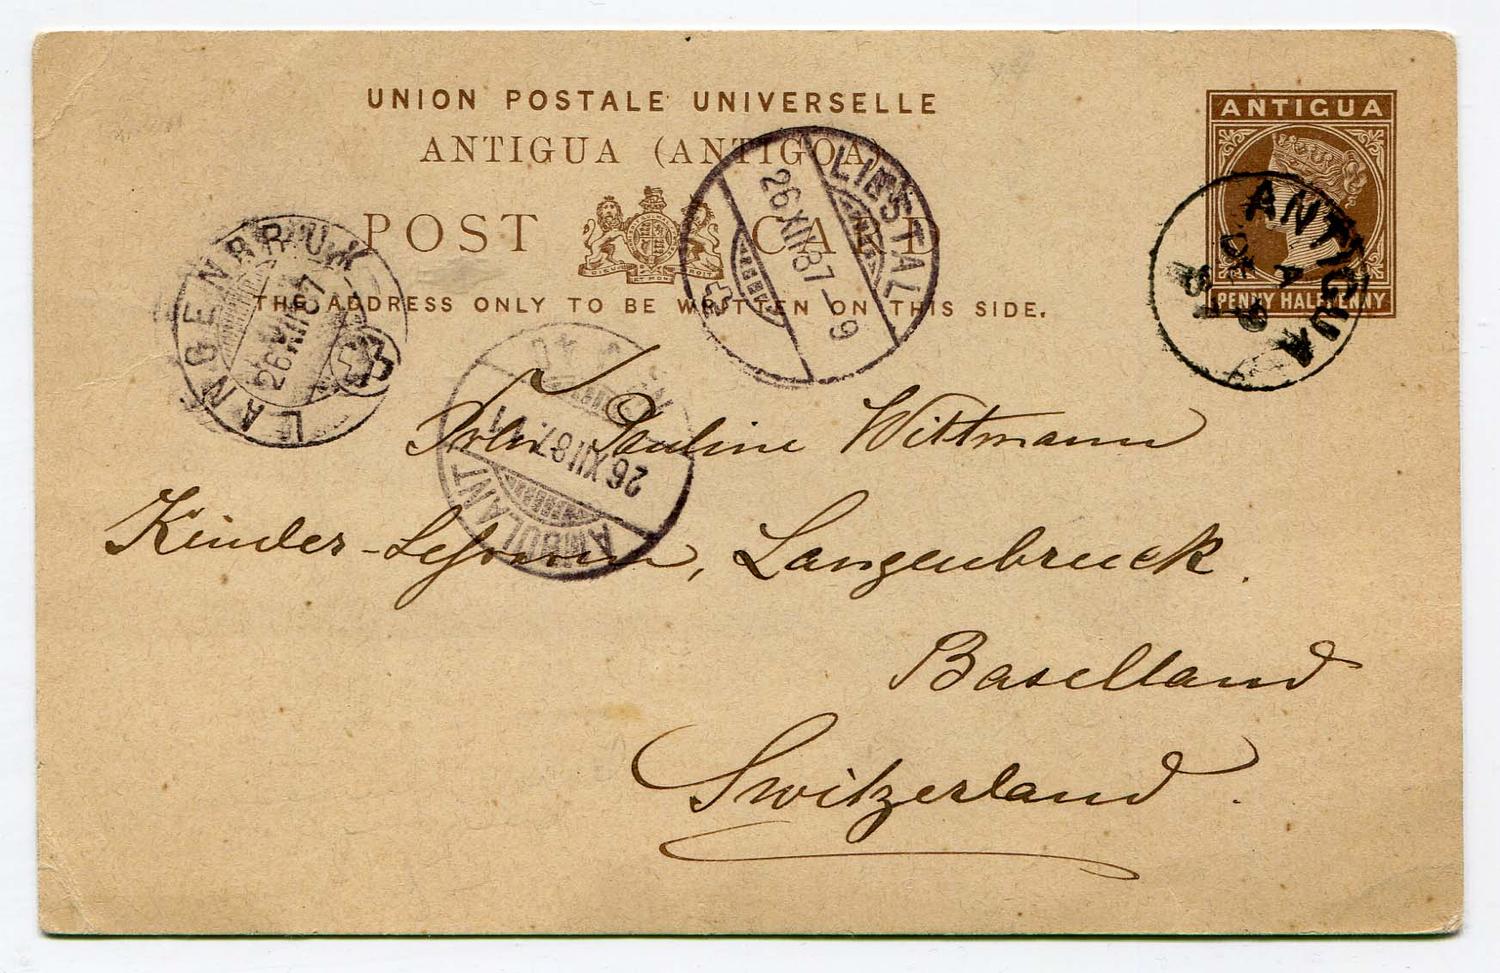 UNION POSTALE UNIVERSELLE
ANTIGUA (ANTIGOA)
POST CARD
THE ADDRESS ONLY TO BE WRITTEN ON THIS SIDE.
ANTIGUA
PENNY HALFPENNY
ANTIGUA
A
LIESTAL
26 XII 87-9
LANGENBRUK
26 XII 87
AMBULANT
26 XII 87. 11
Pauline Wittmann
Kinder-
Langenbruck.
Baselland
Switzerland.